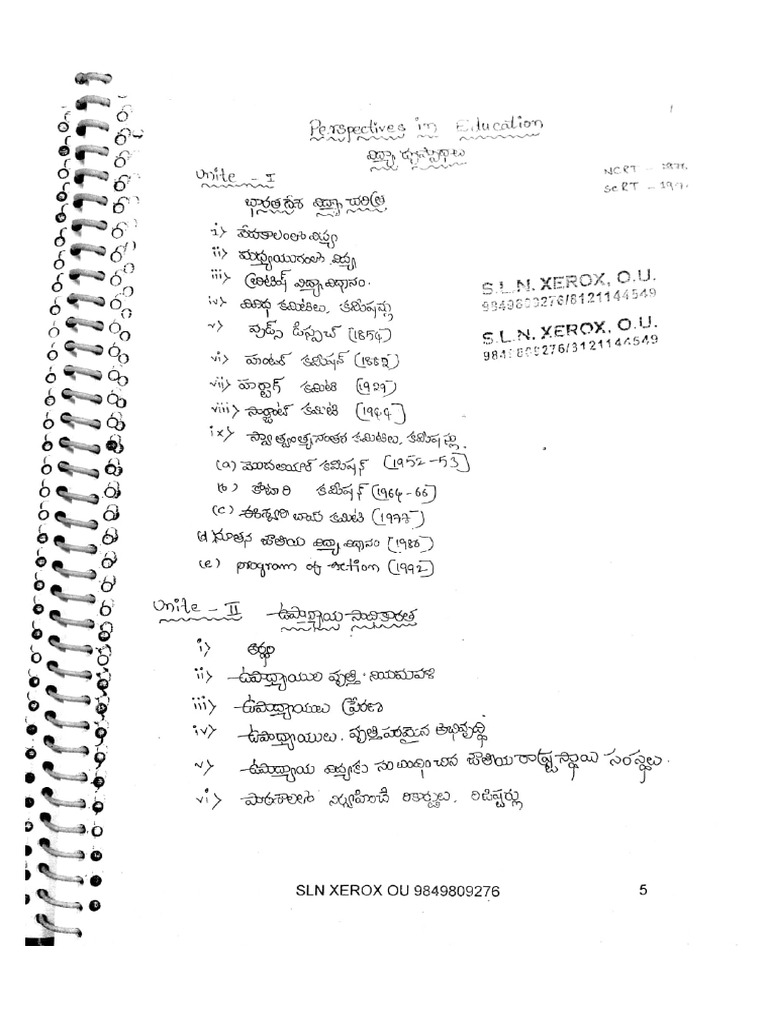 1
Perspectives in Education
విద్యా దృక్పథాలు
NCRT -
SCRT -
Unite - I
భారతదేశ విద్యా చరిత్ర
i> వేదకాలంలో విద్య
ii> మధ్యయుగంలో విద్య
iii> బ్రిటిష్ విద్యా విధానం.
iv> వివిధ కమిటీలు, కమీషన్లు
S.L.N. XEROX, O.U.
9849809276/8121144549
v> వుడ్స్ డిస్పాచ్ (1854)
S.L.N. XEROX, O.U.
9849809276/8121144549
vi> హంటర్ కమీషన్ (1882)
vii> హర్టాగ్ కమిటీ (1927)
viii> సార్జంట్ కమిటీ (1944)
ix> స్వాతంత్ర్యానంతర కమిటీలు, కమీషన్లు.
(a) మొదలియార్ కమీషన్ (1952-53)
(b) కొఠారి కమీషన్ (1964-66)
(c) ఈశ్వరీ బాయి కమిటీ (1977)
(d) నూతన జాతీయ విద్యా విధానం (1986)
(e) program of Action (1992)
Unite - II ఉపాధ్యాయ సాధికారత
i> అర్థం
ii> ఉపాధ్యాయుల వృత్తి నియమావళి
iii> ఉపాధ్యాయులు ప్రేరణ
iv> ఉపాధ్యాయులు. వృత్తిపరమైన అభివృద్ధి
v> ఉపాధ్యాయ విద్యకు సంబంధించిన జాతీయ రాష్ట్ర స్థాయి సంస్థలు.
vi> పాఠశాలలో నిర్వహించే రికార్డులు, రిజిష్టర్లు
SLN XEROX OU 9849809276 5